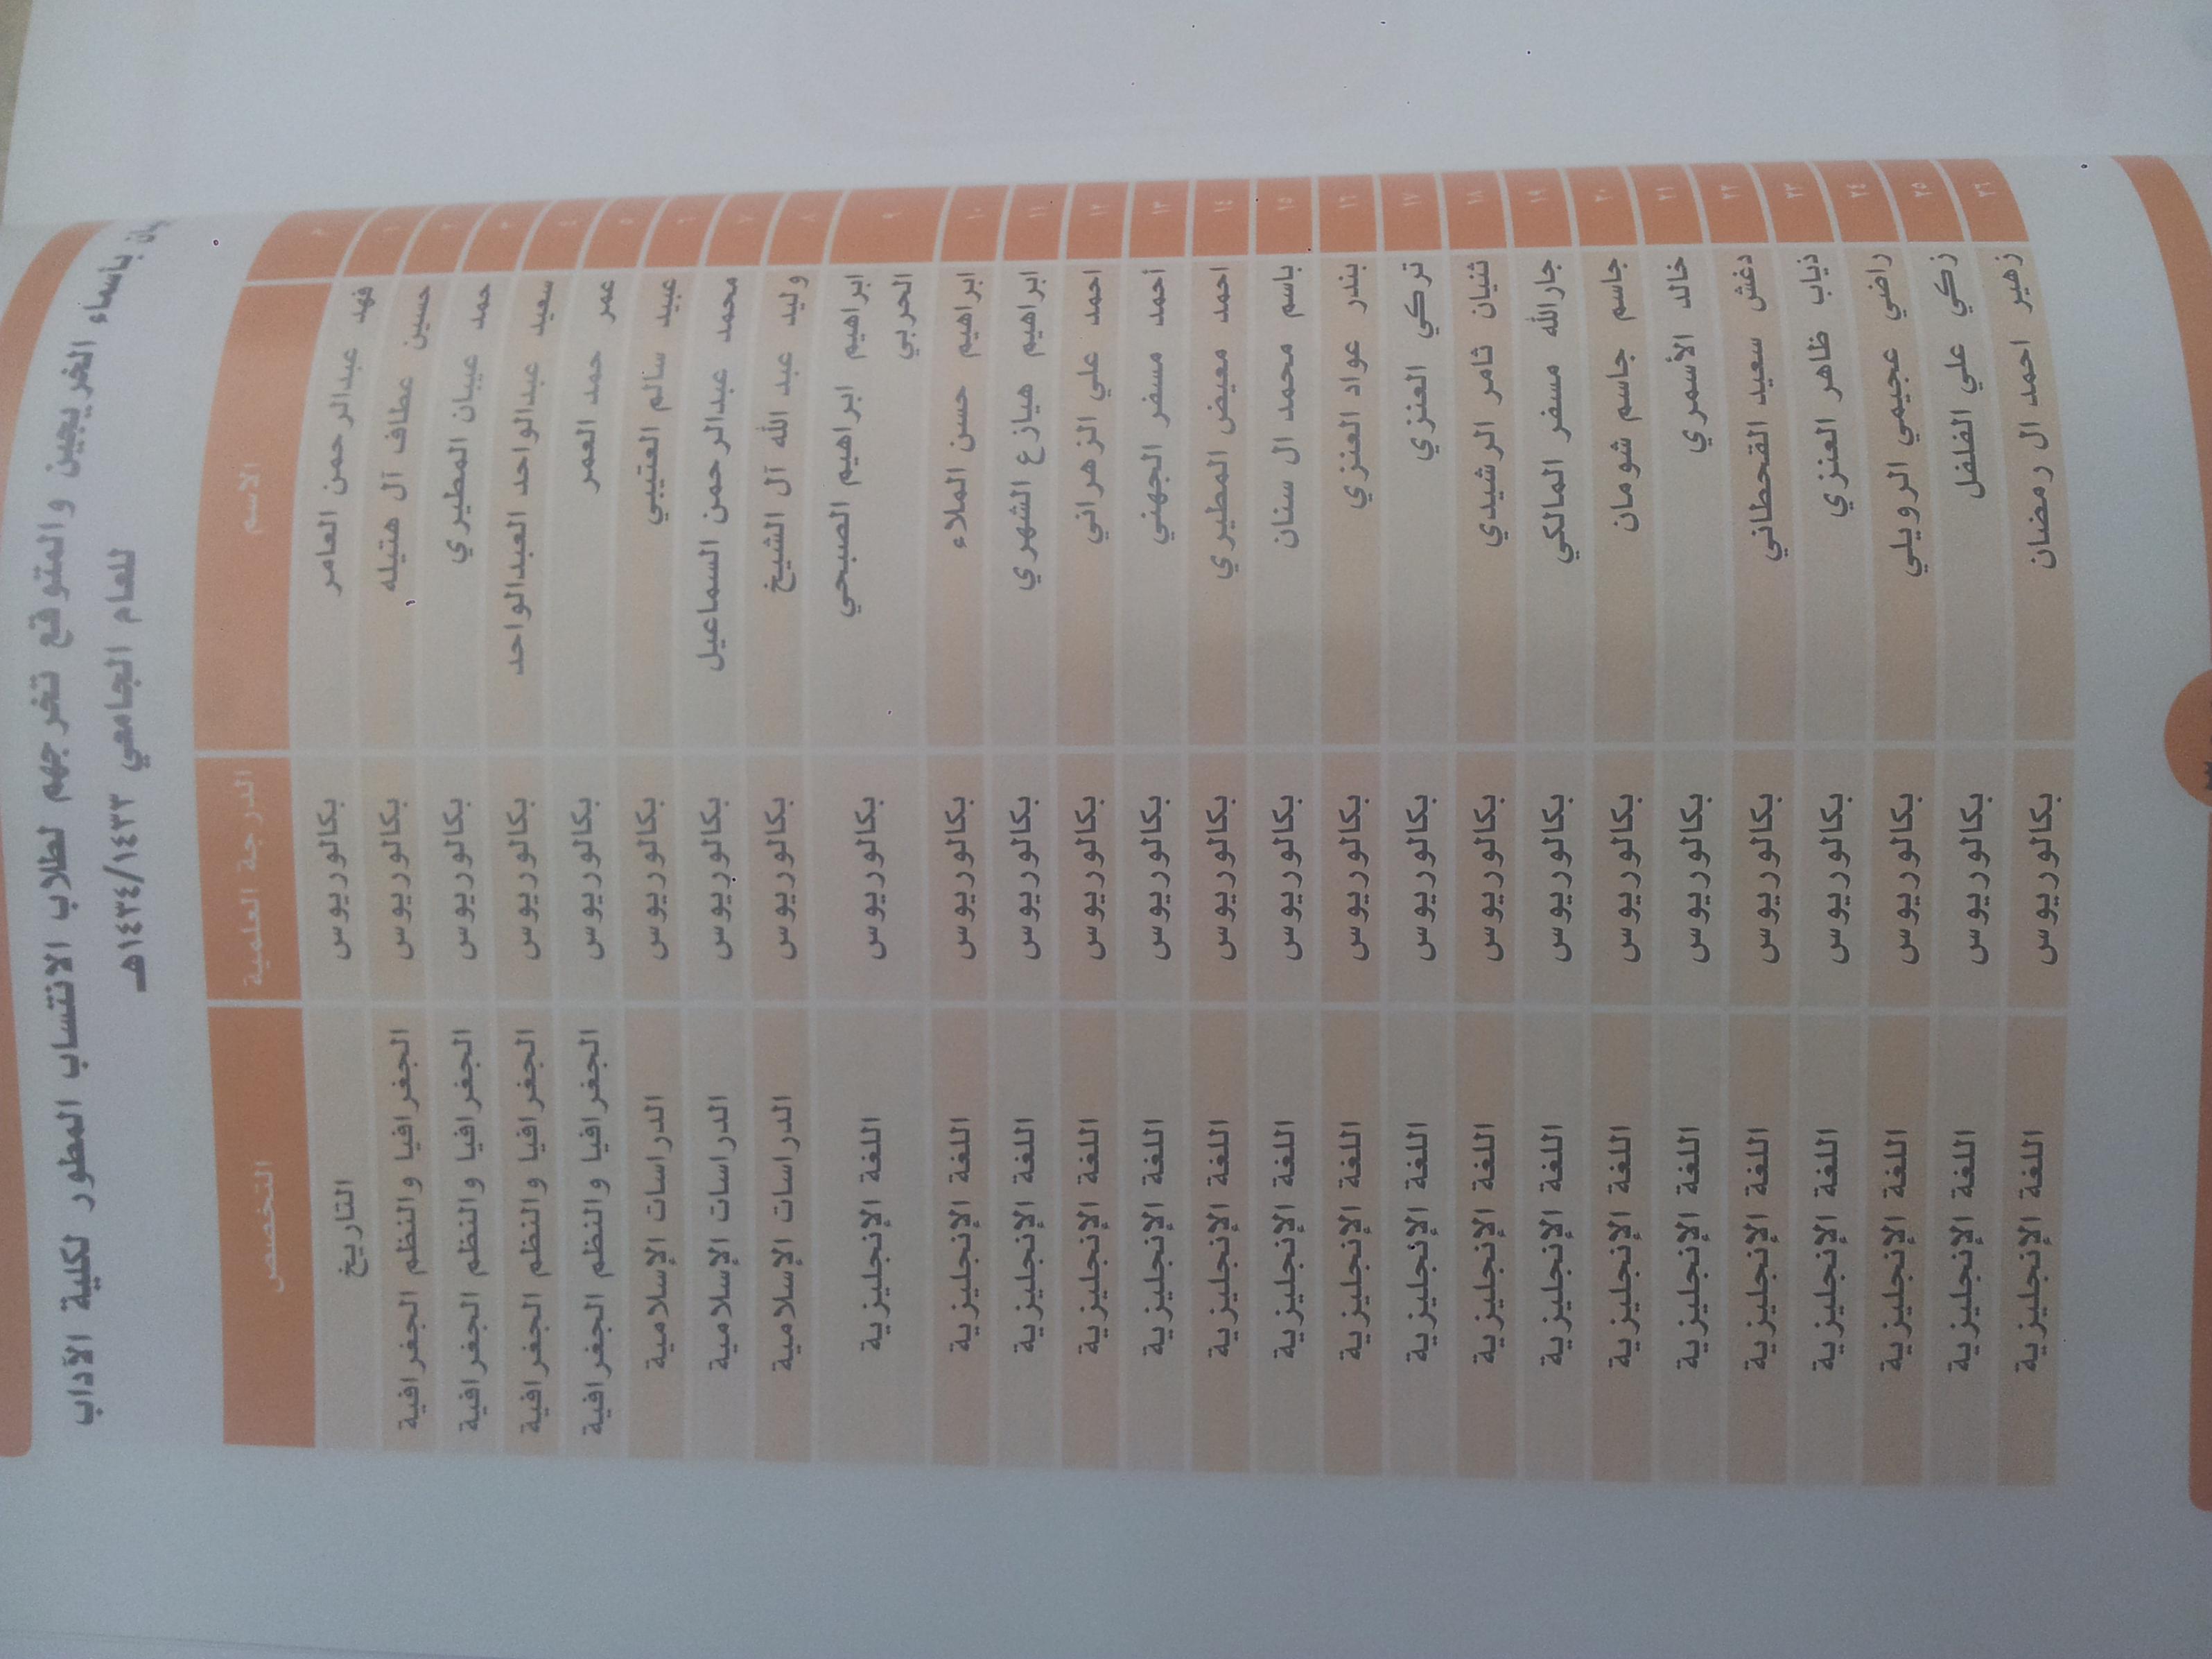 بأسماء الخريجين والمتوقع تخرجهم لطلاب الانتساب المطور لكلية الآداب
للعام الجامعي ١٤٣٤/١٤٣٣هـ
م الاسم الدرجة العلمية التخصص
١ فهد عبدالرحمن العامر بكالوريوس التاريخ
٢ حسين عطاف آل هتيله بكالوريوس الجغرافيا والنظم الجغرافية
٣ حمد عيبان المطيري بكالوريوس الجغرافيا والنظم الجغرافية
٤ سعيد عبدالواحد العبدالواحد بكالوريوس الجغرافيا والنظم الجغرافية
٥ عمر حمد العمر بكالوريوس الجغرافيا والنظم الجغرافية
٦ عبيد سالم العتيبي بكالوريوس الدراسات الإسلامية
٧ محمد عبدالرحمن السماعيل بكالوريوس الدراسات الإسلامية
٨ وليد عبد الله آل الشيخ بكالوريوس الدراسات الإسلامية
٩ ابراهيم ابراهيم الصبحي
الحربي بكالوريوس اللغة الإنجليزية
١٠ ابراهيم حسن الملاء بكالوريوس اللغة الإنجليزية
١١ ابراهيم هيازع الشهري بكالوريوس اللغة الإنجليزية
١٢ احمد علي الزهراني بكالوريوس اللغة الإنجليزية
١٣ أحمد مسفر الجهني بكالوريوس اللغة الإنجليزية
١٤ احمد معيض المطيري بكالوريوس اللغة الإنجليزية
١٥ باسم محمد ال سنان بكالوريوس اللغة الإنجليزية
١٦ بندر عواد العنزي بكالوريوس اللغة الإنجليزية
١٧ تركي العنزي بكالوريوس اللغة الإنجليزية
١٨ ثنيان ثامر الرشيدي بكالوريوس اللغة الإنجليزية
١٩ جارالله مسفر المالكي بكالوريوس اللغة الإنجليزية
٢٠ جاسم جاسم شومان بكالوريوس اللغة الإنجليزية
٢١ خالد الأسمري بكالوريوس اللغة الإنجليزية
٢٢ دغش سعيد القحطاني بكالوريوس اللغة الإنجليزية
٢٣ ذياب ظاهر العنزي بكالوريوس اللغة الإنجليزية
٢٤ راضي عجيمي الرويلي بكالوريوس اللغة الإنجليزية
٢٥ زكي علي الفلفل بكالوريوس اللغة الإنجليزية
٢٦ زهير احمد ال رمضان بكالوريوس اللغة الإنجليزية